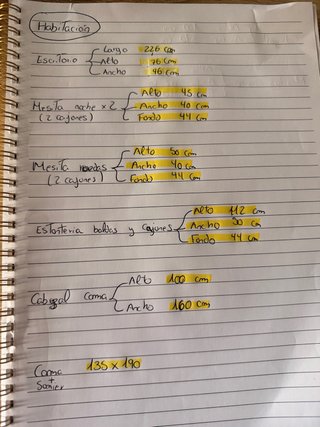 Habitación
Largo 226 cm
Escritorio Alto 76 cm
Ancho 46 cm
Alto 45 cm
Mesita noche x 2 Ancho 40 cm
(2 cajones) Fondo 44 cm
Alto 50 cm
Mesita Ancho 40 cm
(2 cajones) Fondo 44 cm
Alto 112 cm
Estantería baldas y cajones Ancho 50 cm
Fondo 44 cm
Alto 100 cm
Cabezal cama
Ancho 160 cm
Cama 135 x 190
+
Somier